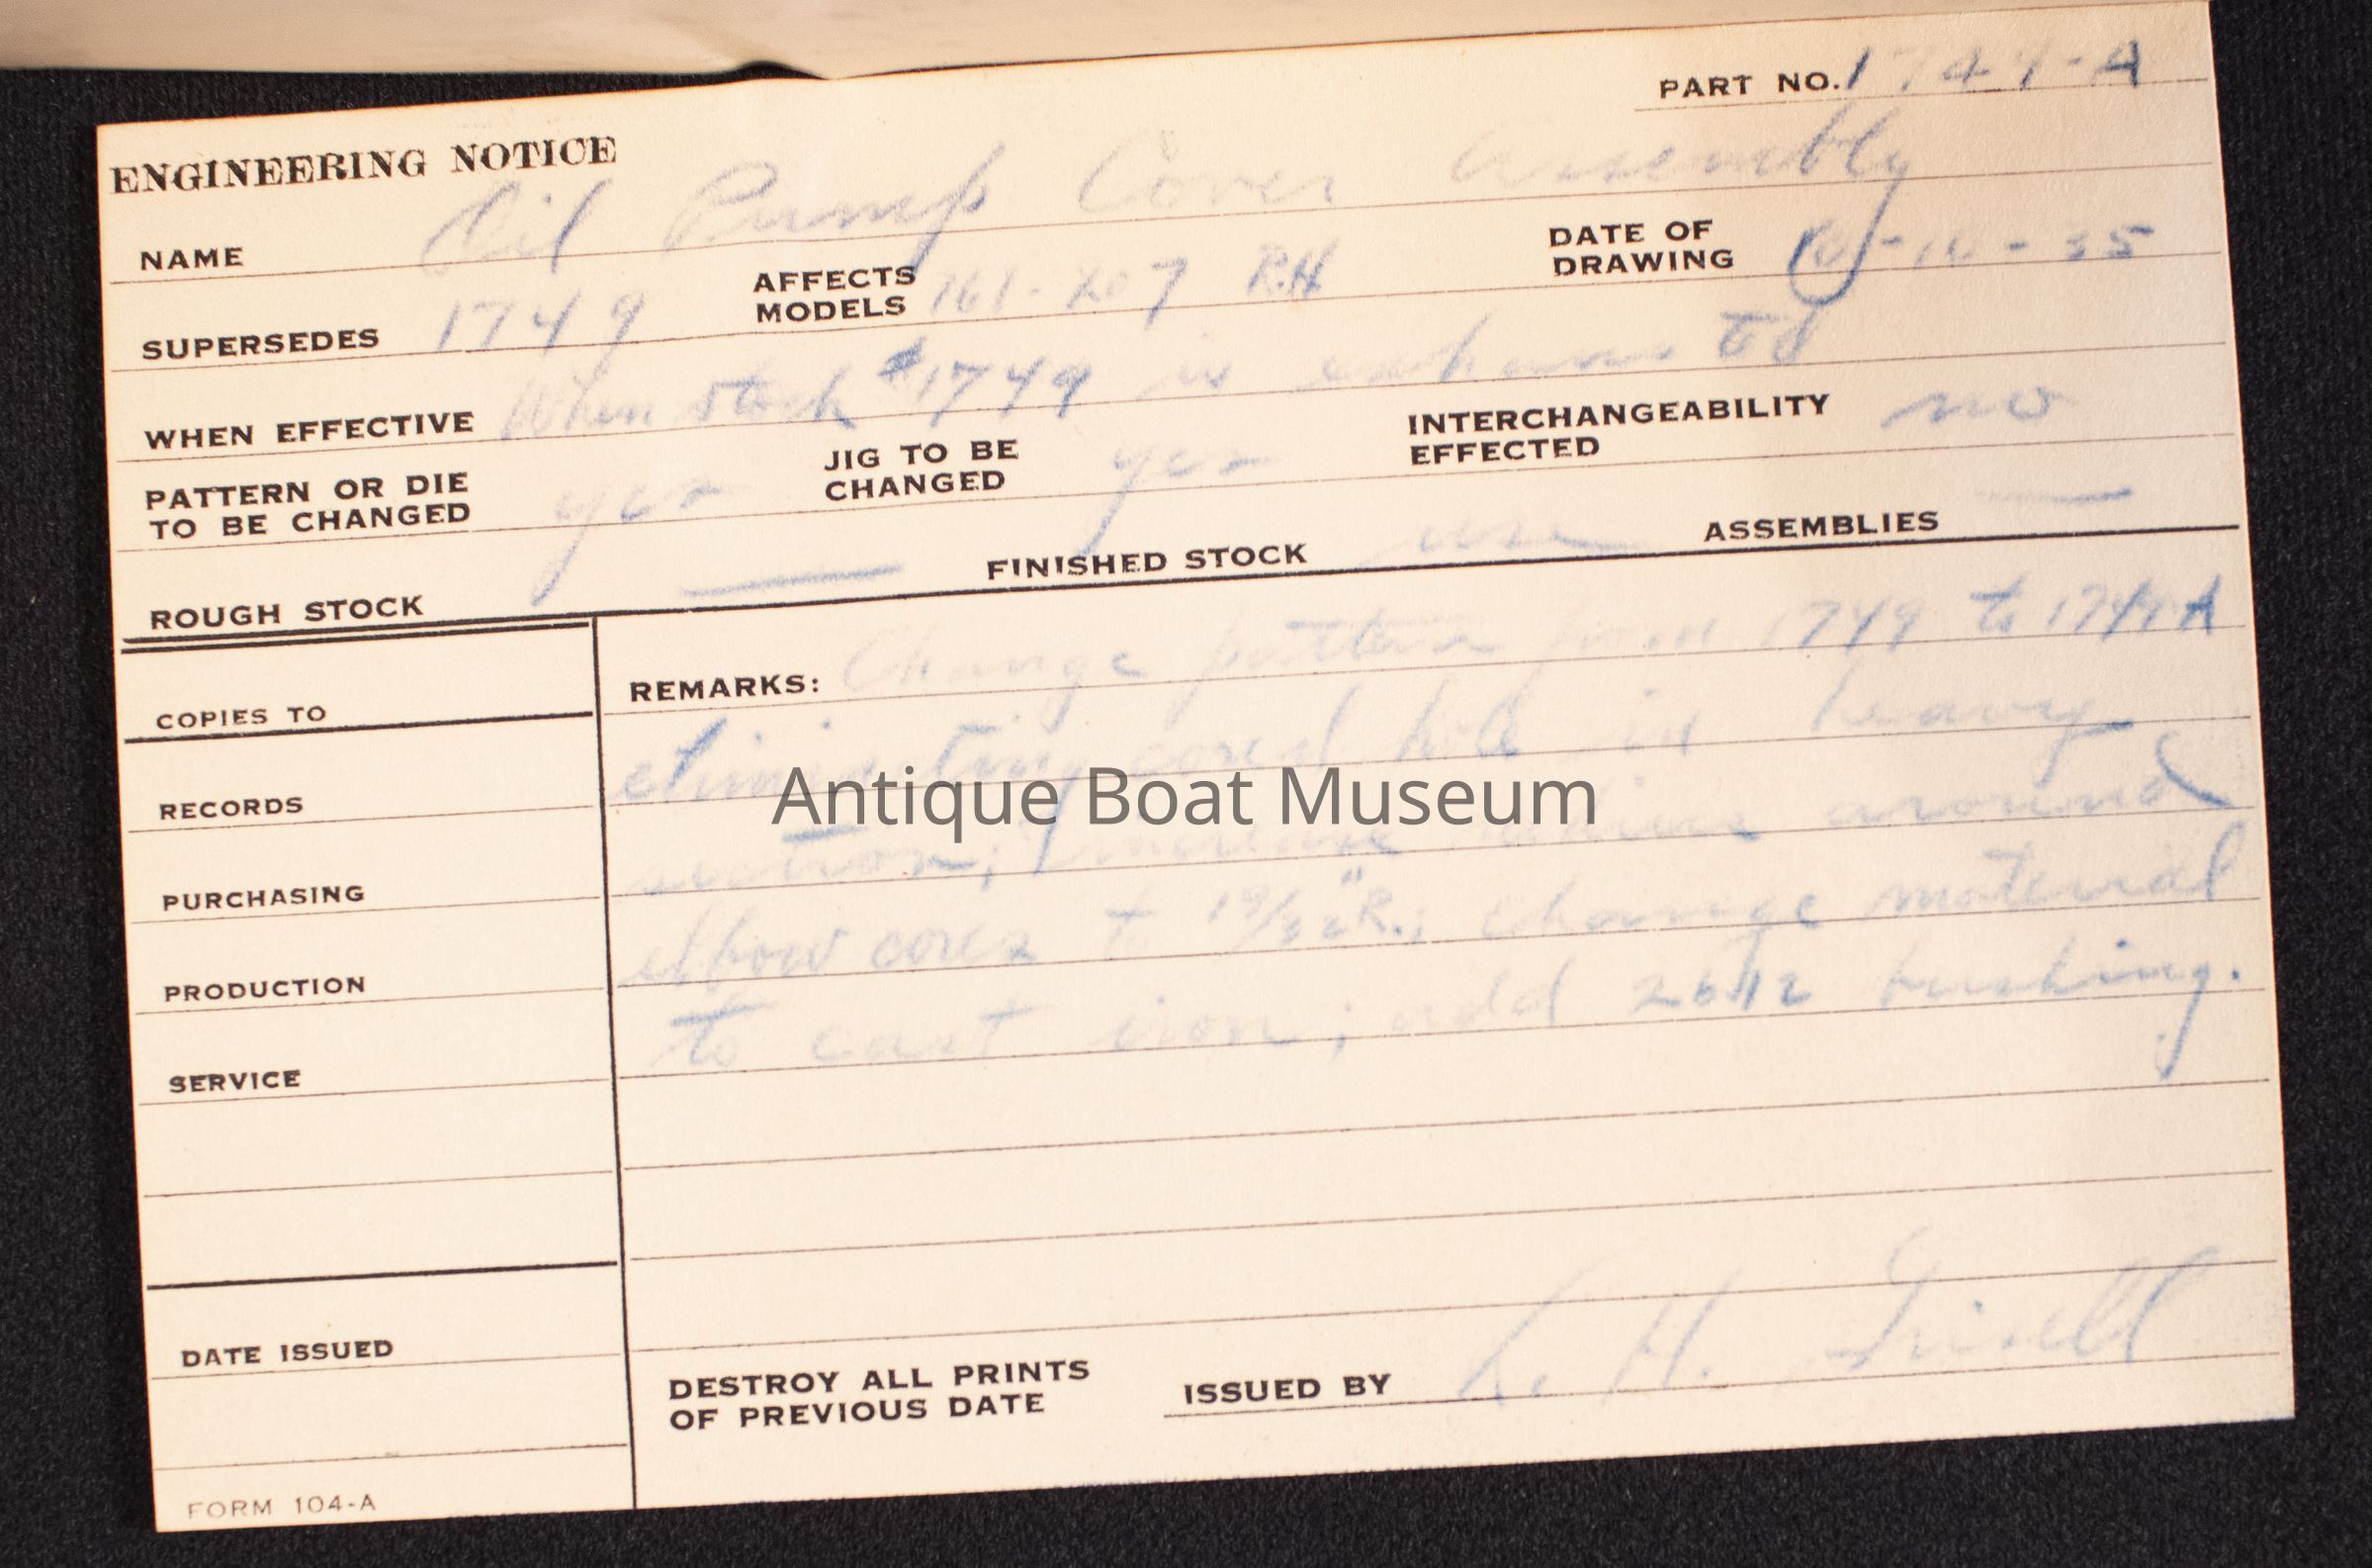 PART NO. 1749-A
ENGINEERING NOTICE
NAME Oil Pump Cover Assembly
SUPERSEDES 1749 AFFECTS MODELS 161-207 RH DATE OF DRAWING 10-10-35
WHEN EFFECTIVE When stock #1749 is exhausted
PATTERN OR DIE TO BE CHANGED yes JIG TO BE CHANGED yes INTERCHANGEABILITY EFFECTED no
ROUGH STOCK — FINISHED STOCK use ASSEMBLIES —
COPIES TO
RECORDS
PURCHASING
PRODUCTION
SERVICE
DATE ISSUED
FORM 104-A
REMARKS: Change pattern from 1749 to 1749A
eliminating cored hole in heavy
section; increase radius around
elbow cores to 19/32" R.; change material
to cast iron; add 2612 bushing.
DESTROY ALL PRINTS OF PREVIOUS DATE
ISSUED BY L. H.
Antique Boat Museum